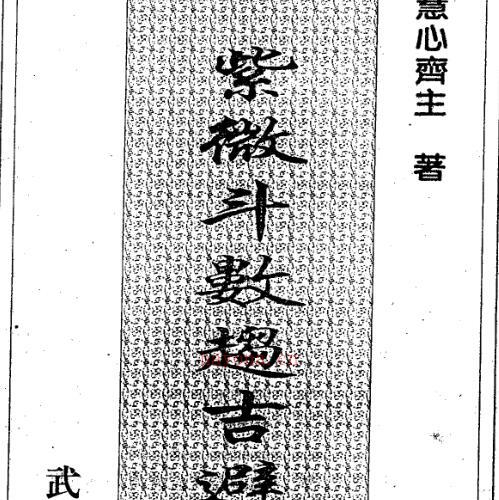 慧心齊主 著
紫微斗數趨吉避
武